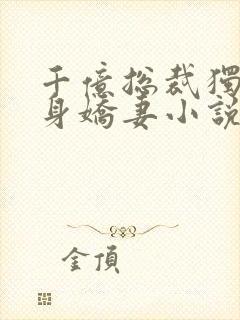 千億總裁獨
身嬌妻小說
金頂